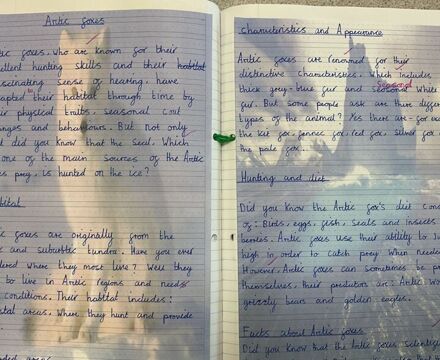 Arctic foxes
tic foxes, who are known for their
ellent hunting skills and their habitat
scinating sense of hearing, have
apted to their habitat through time by
ir physical traits, seasonal coat
nges and behaviours. But not only
t did you know that the seal, which
one of the main sources of the Arctic
es prey, is hunted on the ice?
bitat
ic foxes are originally from the
c and subarctic tundra. Have you ever
dered where they most live? Well they
to live in Arctic regions and needs
conditions. Their habitat includes:
stal areas, Where they hunt and provide
ded areas
Characteristics and Appearance
Arctic foxes are renowned for their
distinctive characteristics, which includes
seasonal
thick grey-blue fur and seasonal white
fur. But some people ask are there diffe
types of the animal? Yes there are- for exa
the kit fox, fennec fox, red fox, silver fox
the pale fox.
Hunting and diet
Did you know the Arctic fox's diet con
of: Birds, eggs, fish, Seals and insects
berries. Arctic foxes use their ability to Ju
high in order to catch prey When needed
However, Arctic foxes can sometimes be p
themselves, their predators are: Arctic Wo
grizzly bears and golden eagles.
Facts about Arctic foxes
Did you know that the Arctic